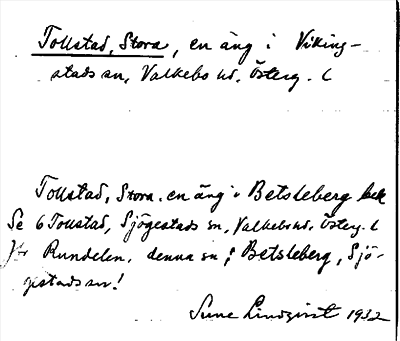 Tollstad, Stora, en äng i Viking-
stads sn, Valkebo hd. Österg. l
Tollstad, Stora. en äng i Betsleberg bek
Se 6 Tollstad, Sjögestads sn, Valkebo hd. Österg. l
Jfr Rundelen, denna sn; Betsleberg, Sjö-
gestads sn!
Sune Lindqvist 1932